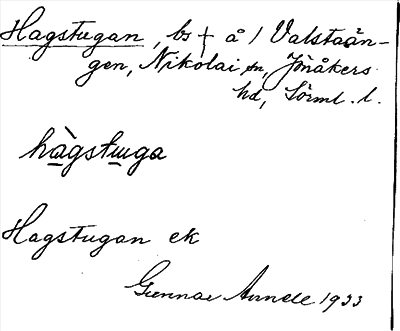 Hagstugan, bs † å / Valstaän-
gen, Nikolai sn, Jönåkers
hd, Sörml. l.
hàgstuga
Hagstugan ek
Gunnar Arnell 1933